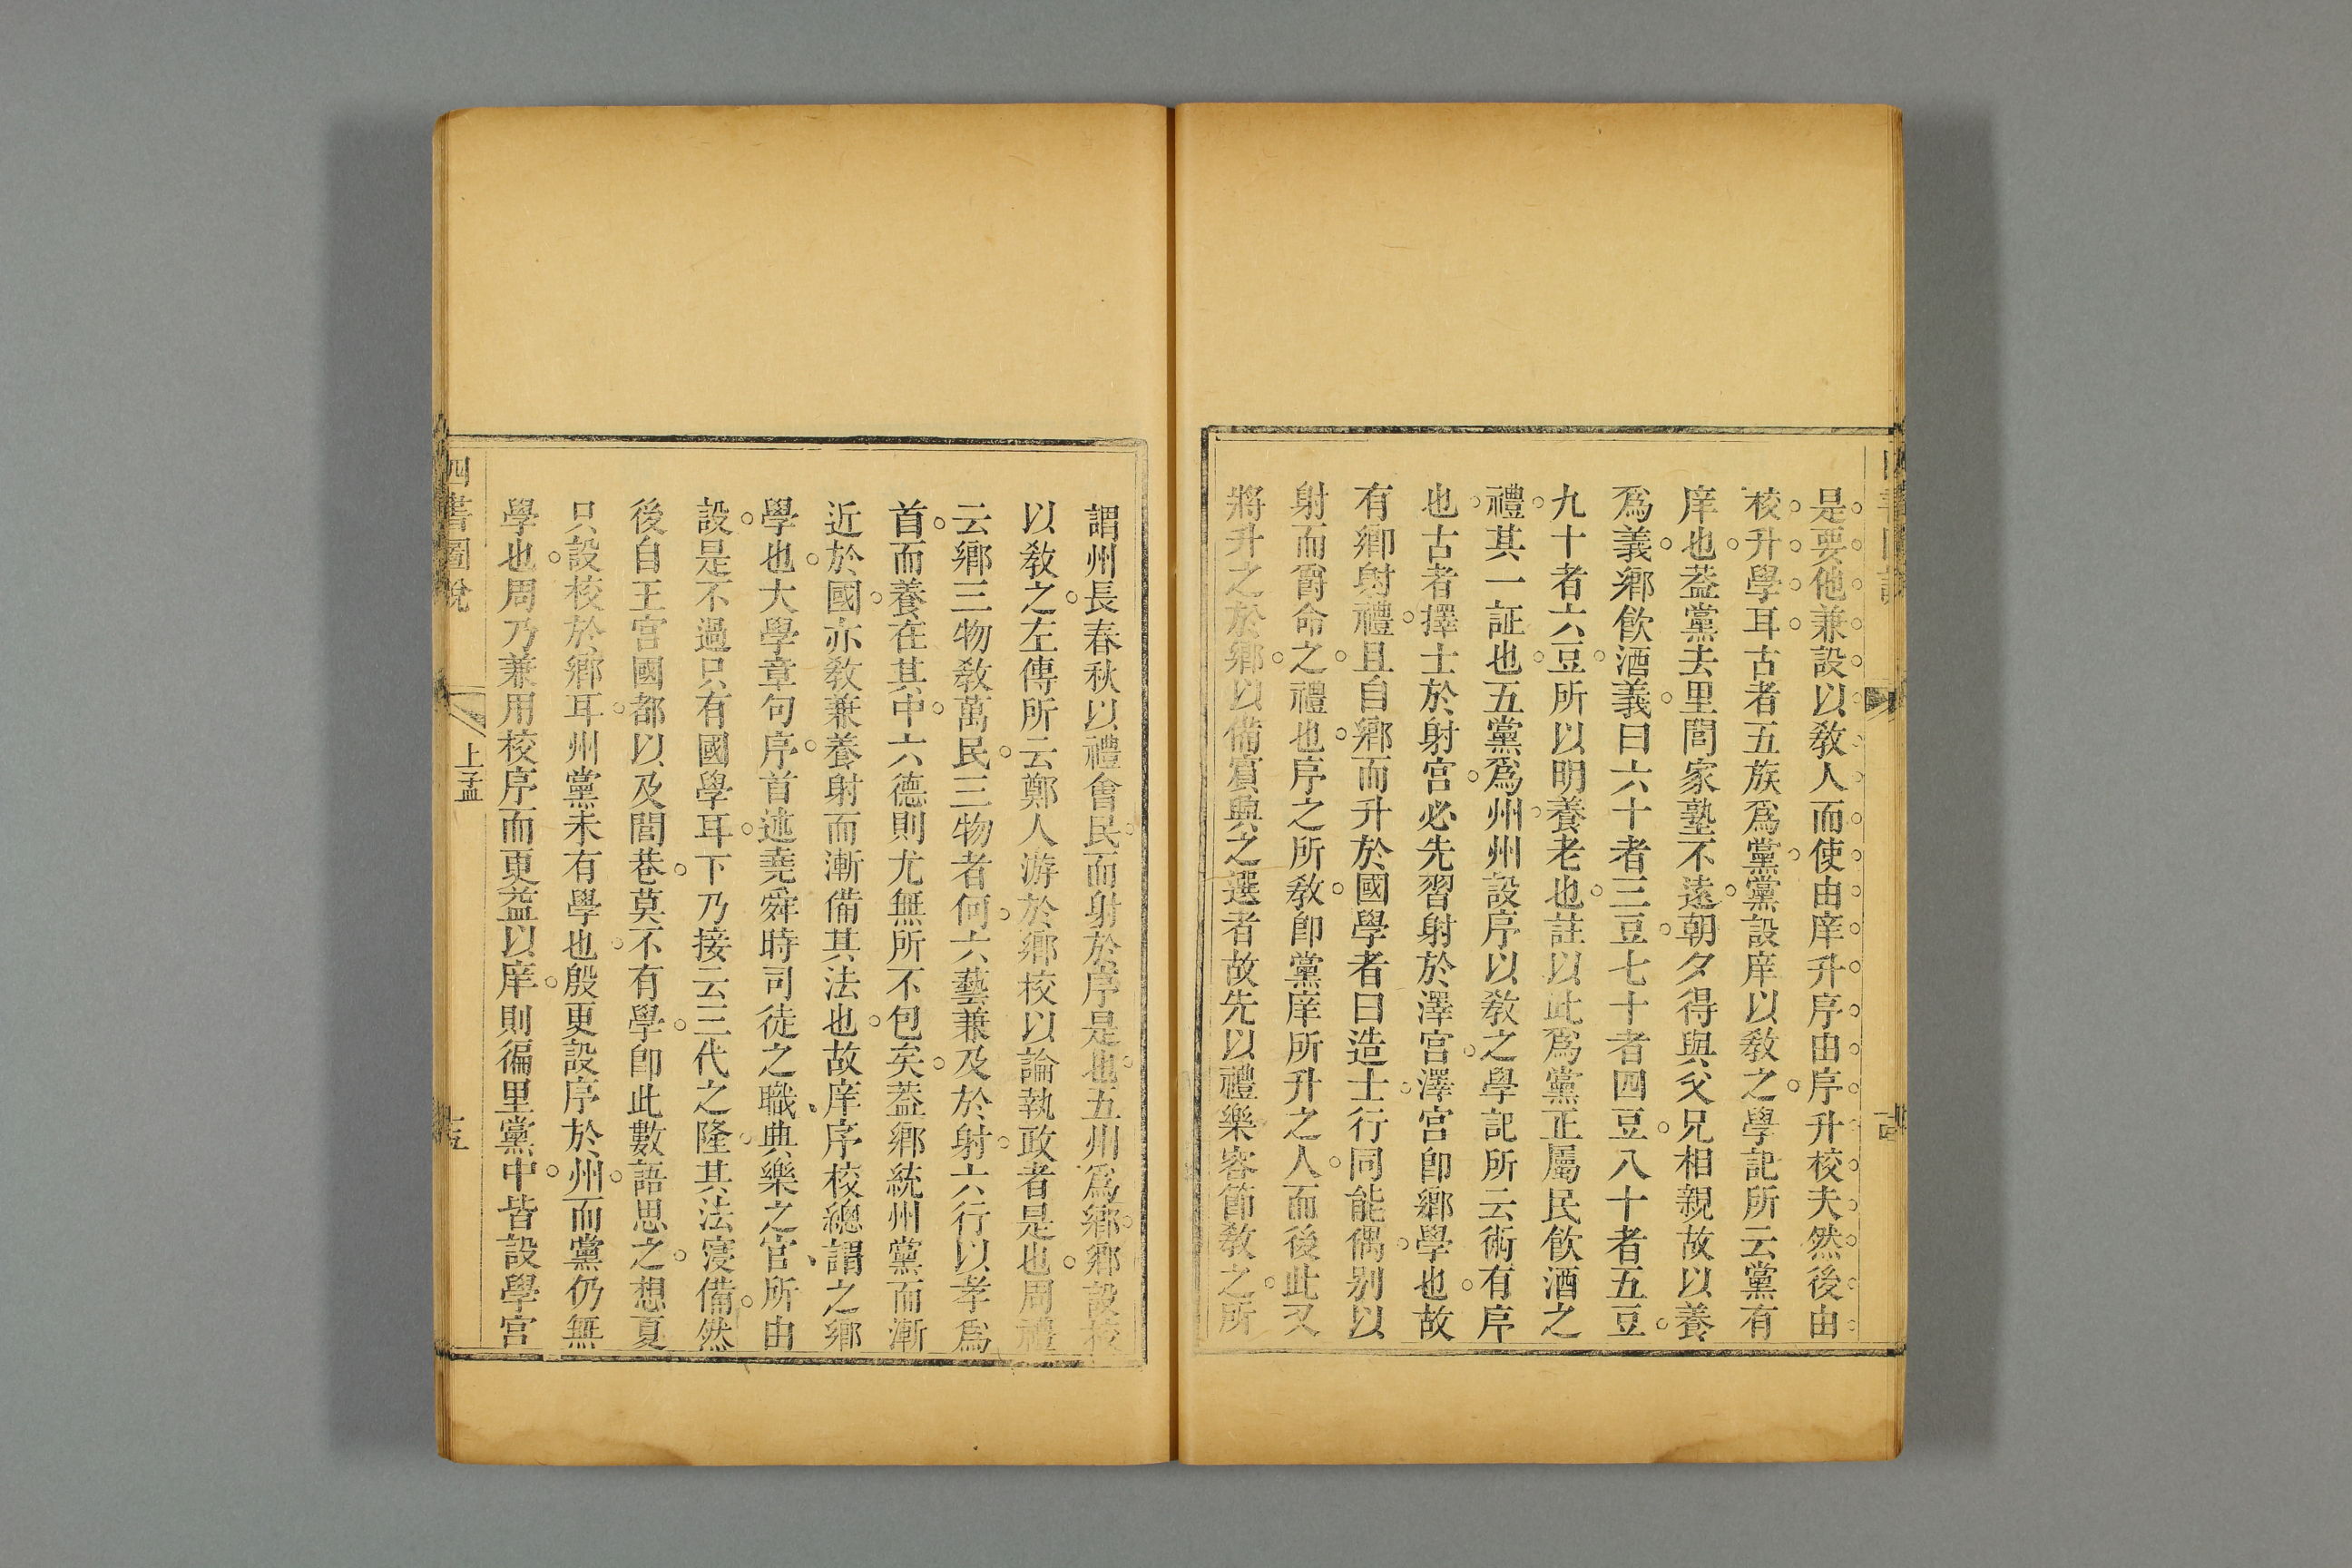 是要他兼設以敎人而使由庠升序由序升校夫然後由
校升學耳古者五族爲黨黨設庠以敎之學記所云黨有
庠也葢黨去里閭家塾不遠朝夕得與父兄相親故以養
爲義鄉飮酒義曰六十者三豆七十者四豆八十者五豆
九十者六豆所以明養老也註以此爲黨正屬民飮酒之
禮其一証也五黨爲州州設序以敎之學記所云術有序
也古者擇士於射宮必先習射於澤宮澤宮卽鄉學也故
有鄉射禮且自鄉而升於國學者曰造士行同能偶别以
射而爵命之禮也序之所敎卽黨庠所升之人而後此又
將升之於鄉以備賓興之選者故先以禮樂容節敎之所
謂州長春秋以禮會民而射於序是也五州爲鄉鄉設校
以敎之左傳所云鄭人游於鄉校以論執政者是也周禮
云鄉三物敎萬民三物者何六藝兼及於射六行以孝爲
首而養在其中六德則尤無所不包矣葢鄉統州黨而漸
近於國亦敎兼養射而漸備其法也故庠序校總謂之鄉
學也大學章句序首述堯舜時司徒之職典樂之官所由
設是不過只有國學耳下乃接云三代之隆其法寖備然
後自王宮國都以及閭巷莫不有學卽此數語思之想夏
只設校於鄉耳州黨未有學也殷更設序於州而黨仍無
學也周乃兼用校序而更益以庠則徧里黨中皆設學宮
四書圖說
上孟
十五